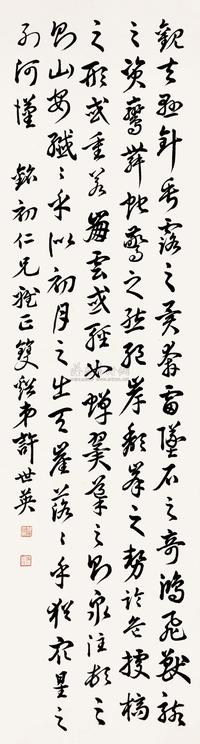 觀夫懸針垂露之異奔雷墜石之奇鴻飛獸駭
之資鸞舞蛇驚之態絕岸頹峯之勢臨危據槁
之形或重若崩雲或輕如蟬翼導之則泉注頓之
則山安纖〻乎似初月之出天崖落〻乎猶眾星之
列河漢 銘初仁兄雅正 雙谿弟許世英